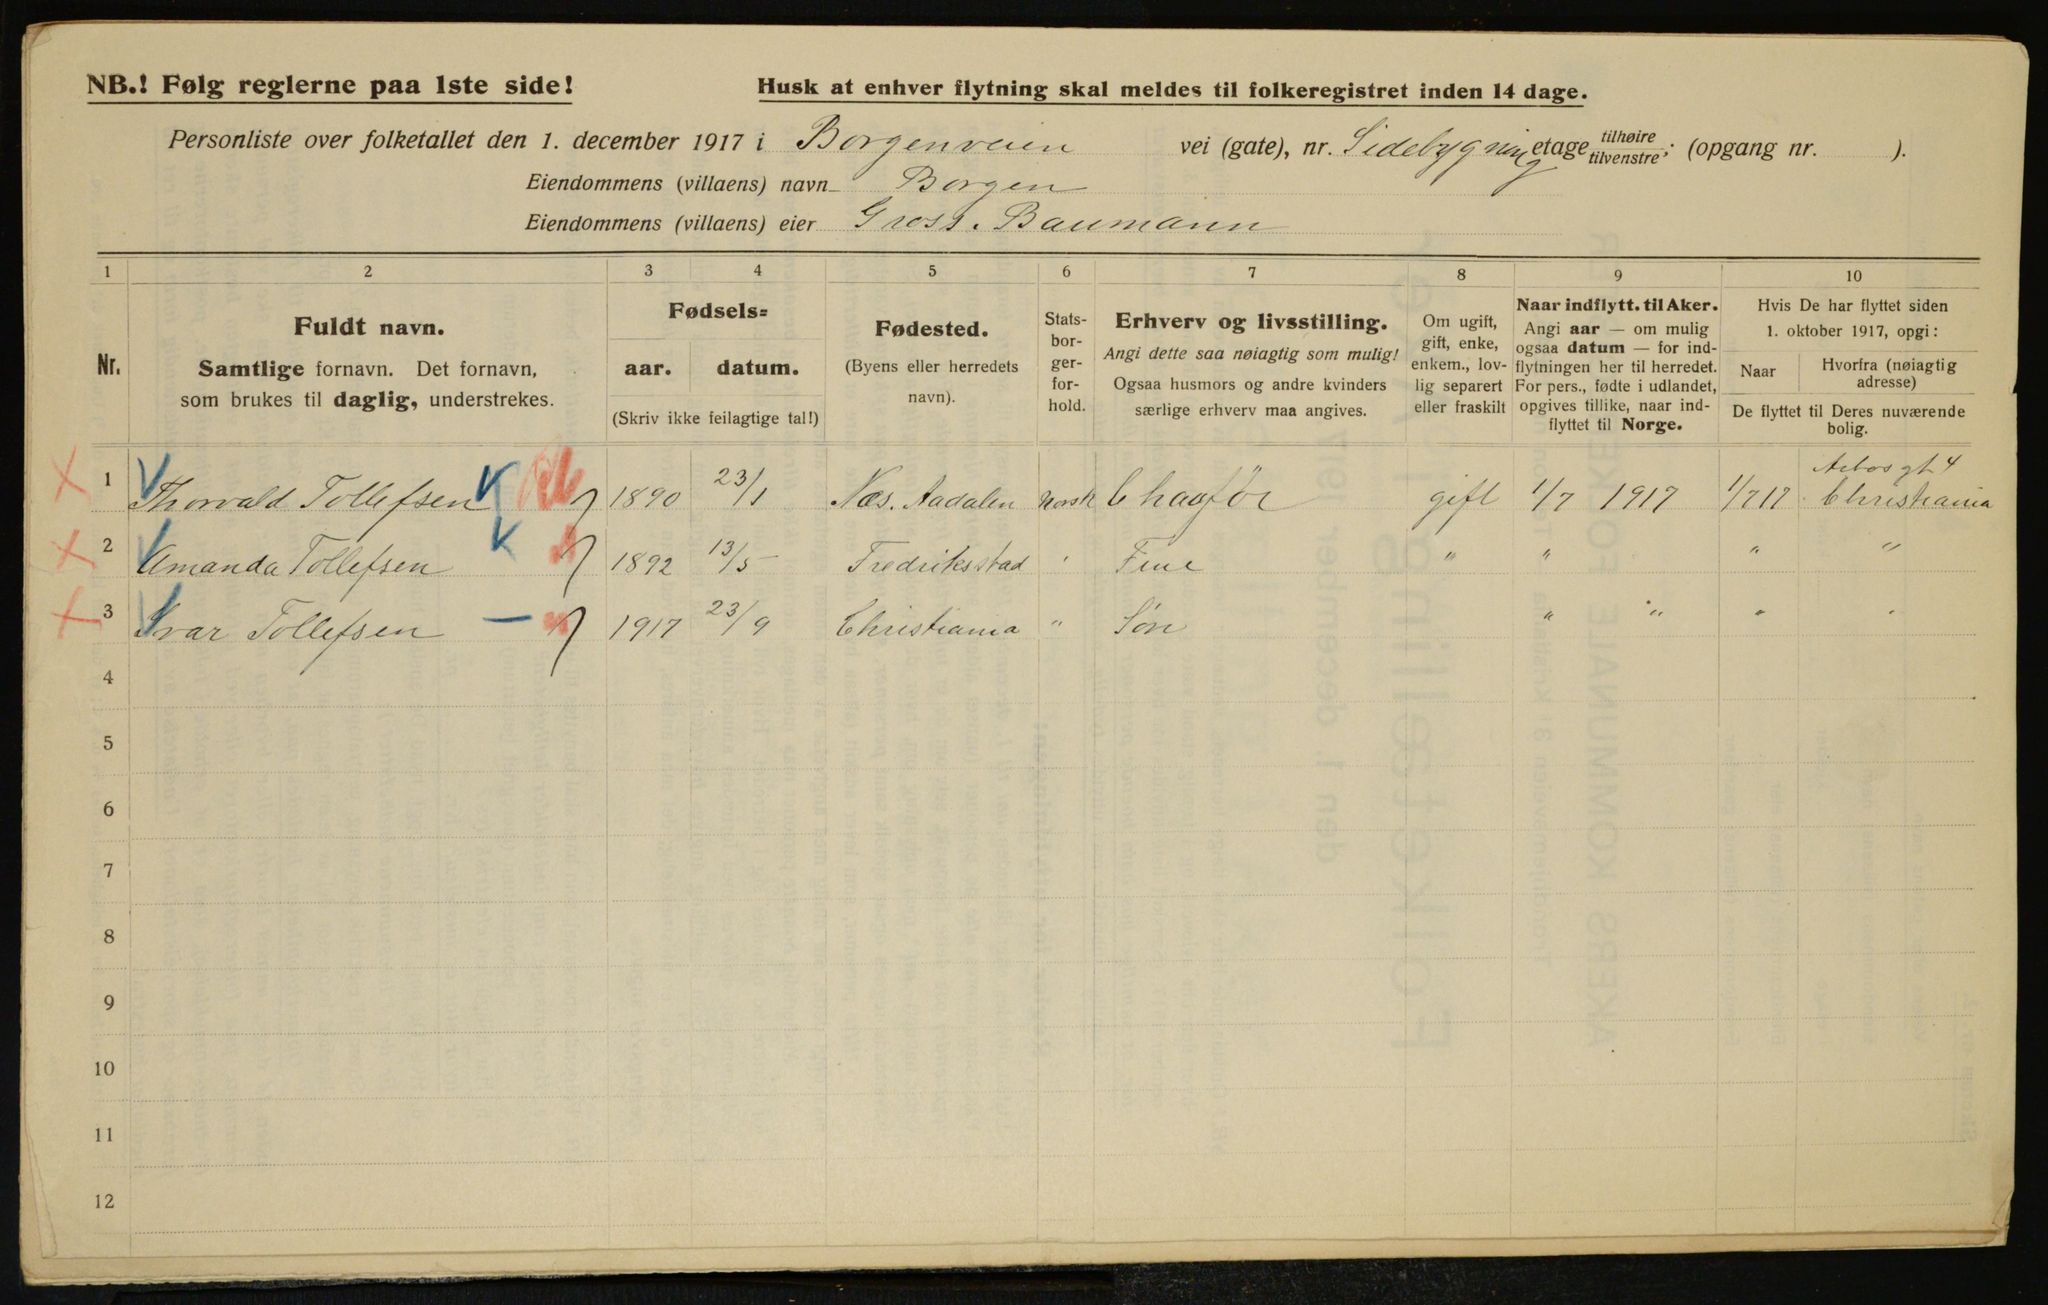 NB.! Følg reglerne paa 1ste side! Husk at enhver flytning skal meldes til folkeregistret inden 14 dage.
Personliste over folketallet den 1. december 1917 i Borgenveien vei (gate), nr. Sidebygning etage tilhøire tilvenstre; (opgang nr. ).
Eiendommens (villaens) navn Borgen
Eiendommens (villaens) eier Gross. Baumann
1 2 3 4 5 6 7 8 9 10
Nr.
Fuldt navn.
Samtlige fornavn. Det fornavn,
som brukes til daglig, understrekes.
Fødsels=
aar. datum.
(Skriv ikke feilagtige tal!)
Fødested.
(Byens eller herredets
navn).
Stats-
bor-
ger-
for-
hold.
Erhverv og livsstilling.
Angi dette saa nøiagtig som mulig!
Ogsaa husmors og andre kvinders
særlige erhverv maa angives.
Om ugift,
gift, enke,
enkem., lov-
lig separert
eller fraskilt
Naar indflytt. til Aker.
Angi aar — om mulig
ogsaa datum — for ind-
flytningen her til herredet.
For pers., fødte i utlandet,
opgives tillike, naar ind-
flyttet til Norge.
Hvis De har flyttet siden
1. oktober 1917, opgi:
Naar Hvorfra (nøiagtig
adresse)
De flyttet til Deres nuværende
bolig.
1 Thorvald Tollefsen 1890 23/1 Næs. Aadalen norsk Chaufør gift 1/7 1917 1/7 17 Christiania
2 Amanda Tollefsen 1892 13/5 Fredriksstad " " " " "
3 Ivar Tollefsen 1917 23/9 Christiania " Søn " " " "
4
5
6
7
8
9
10
11
12